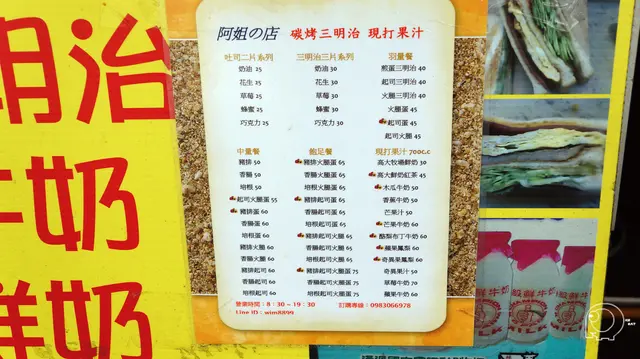 明治
牛奶
鮮奶
阿姐の店 碳烤三明治 現打果汁
吐司二片系列
奶油 25
花生 25
草莓 25
蜂蜜 25
巧克力 25
三明治三片系列
奶油 30
花生 30
草莓 30
蜂蜜 30
巧克力 30
羽量餐
煎蛋三明治 40
起司三明治 40
火腿三明治 40
火腿蛋 45
起司蛋 45
起司火腿 45
中量餐
豬排 50
香腸 50
培根 50
起司火腿蛋 55
豬排蛋 60
香腸蛋 60
培根蛋 60
豬排火腿 60
香腸火腿 60
培根火腿 60
豬排起司 60
香腸起司 60
培根起司 60
飽足餐
豬排火腿蛋 65
香腸火腿蛋 65
培根火腿蛋 65
豬排起司蛋 65
香腸起司蛋 65
培根起司蛋 65
豬排起司火腿 65
香腸起司火腿 65
培根起司火腿 65
豬排起司火腿蛋 75
香腸起司火腿蛋 75
培根起司火腿蛋 75
現打果汁 700c.c
高大牧場鮮奶 30
高大鮮奶紅茶 45
木瓜牛奶 50
香蕉牛奶 50
芒果汁 50
芒果牛奶 60
酪梨布丁牛奶 60
蘋果鳳梨 60
奇異果鳳梨 60
奇異果汁 50
草莓牛奶 60
蘋果牛奶 60
營業時間：8：30 ~ 19：30 訂購專線：0983066978
Line ID：wim8899